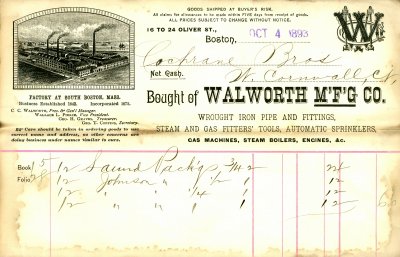 GOODS SHIPPED AT BUYER'S RISK.
All claims for allowances to be made within FIVE days from receipt of goods.
ALL PRICES SUBJECT TO CHANGE WITHOUT NOTICE.
16 TO 24 OLIVER ST.,
Boston, OCT 4 1893
Cochrane Bros
Net Cash. W. Cornwall, Ct.
Bought of WALWORTH M'F'G CO.
WROUGHT IRON PIPE AND FITTINGS,
STEAM AND GAS FITTERS' TOOLS, AUTOMATIC SPRINKLERS,
GAS MACHINES, STEAM BOILERS, ENGINES, &c.
FACTORY AT SOUTH BOSTON, MASS.
Business Established 1842. Incorporated 1872.
C. C. WALWORTH, Pres. & Gen'l Manager.
GEO. H. GRAVES, Treasurer.
GEO. T. COPPINS, Secretary.
Care should be taken in ordering goods to use
correct name and address, as other concerns are
doing business under names similar to ours.
Book 5 12 Sound Pack'gs
Folio 12 Johnson " 1 12
12 " " 1 12
12 " " 1 12